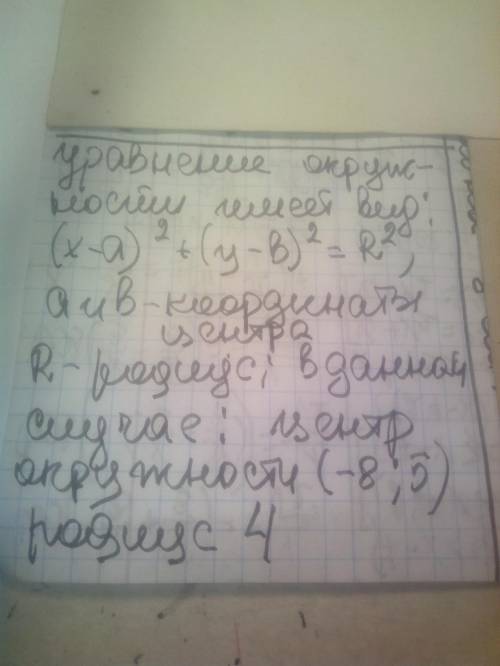 уравнение окруж-
ности имеет вид:
(x-a)² + (y-b)² = R²,
a и b - координаты
центра
R - радиус; в данном
случае: центр
окружности (-8; 5)
радиус 4